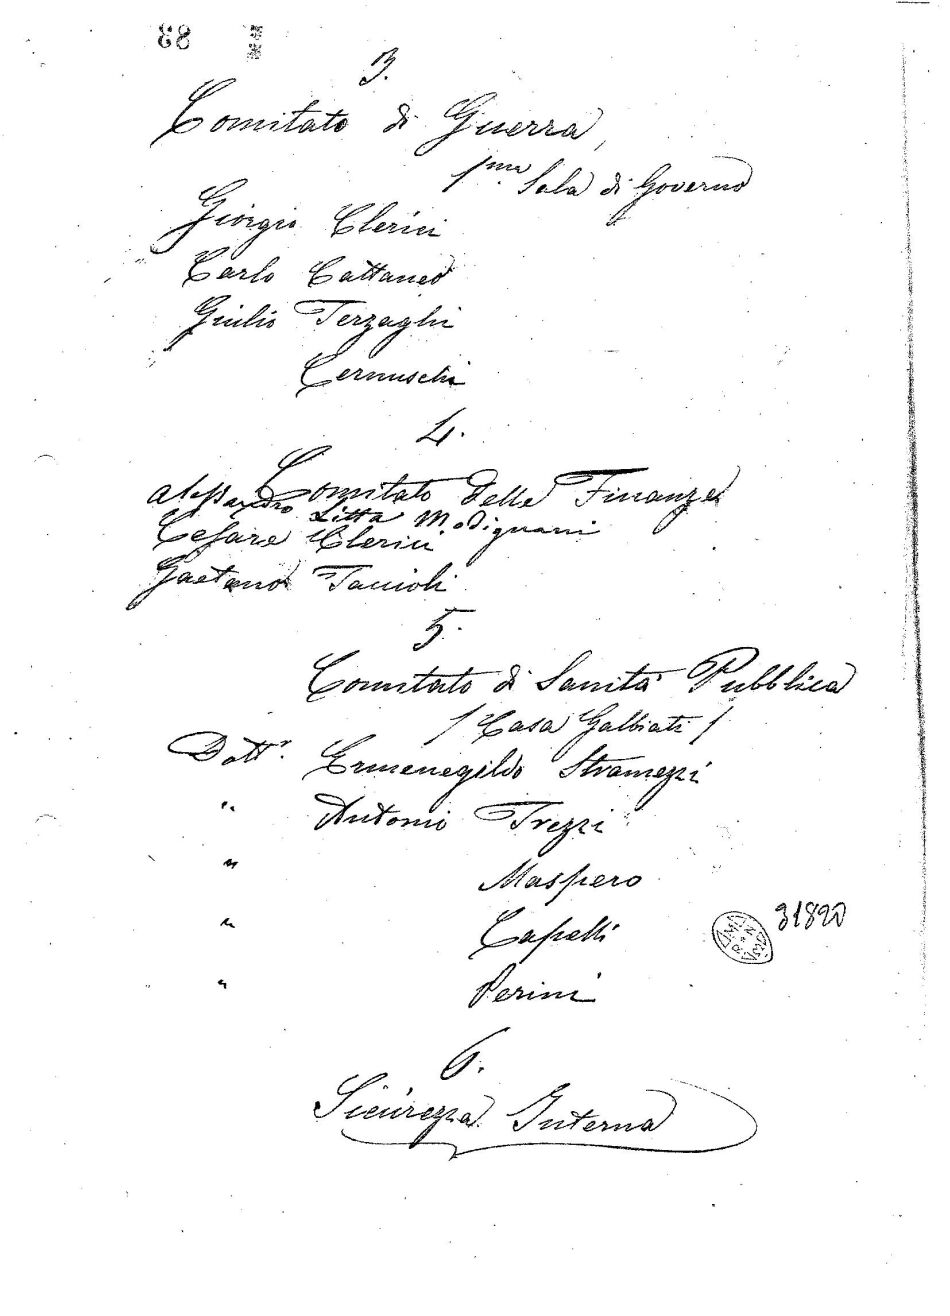 83
3.
Comitato di Guerra,
1.ma Sala di Governo
Giorgio Clerici
Carlo Cattaneo
Giulio Terzaghi
Cernuschi
4.
Comitato delle Finanze
Alessandro Litta Modignani
Cesare Clerici
Gaetano Taccioli
5.
Comitato di Sanità Pubblica
/ Casa Galbiati /
Dott.r Ermenegildo Stramezzi
" Antonio Trezzi
" Maspero
" Capelli
" Perini
31820
6.
Sicurezza Interna